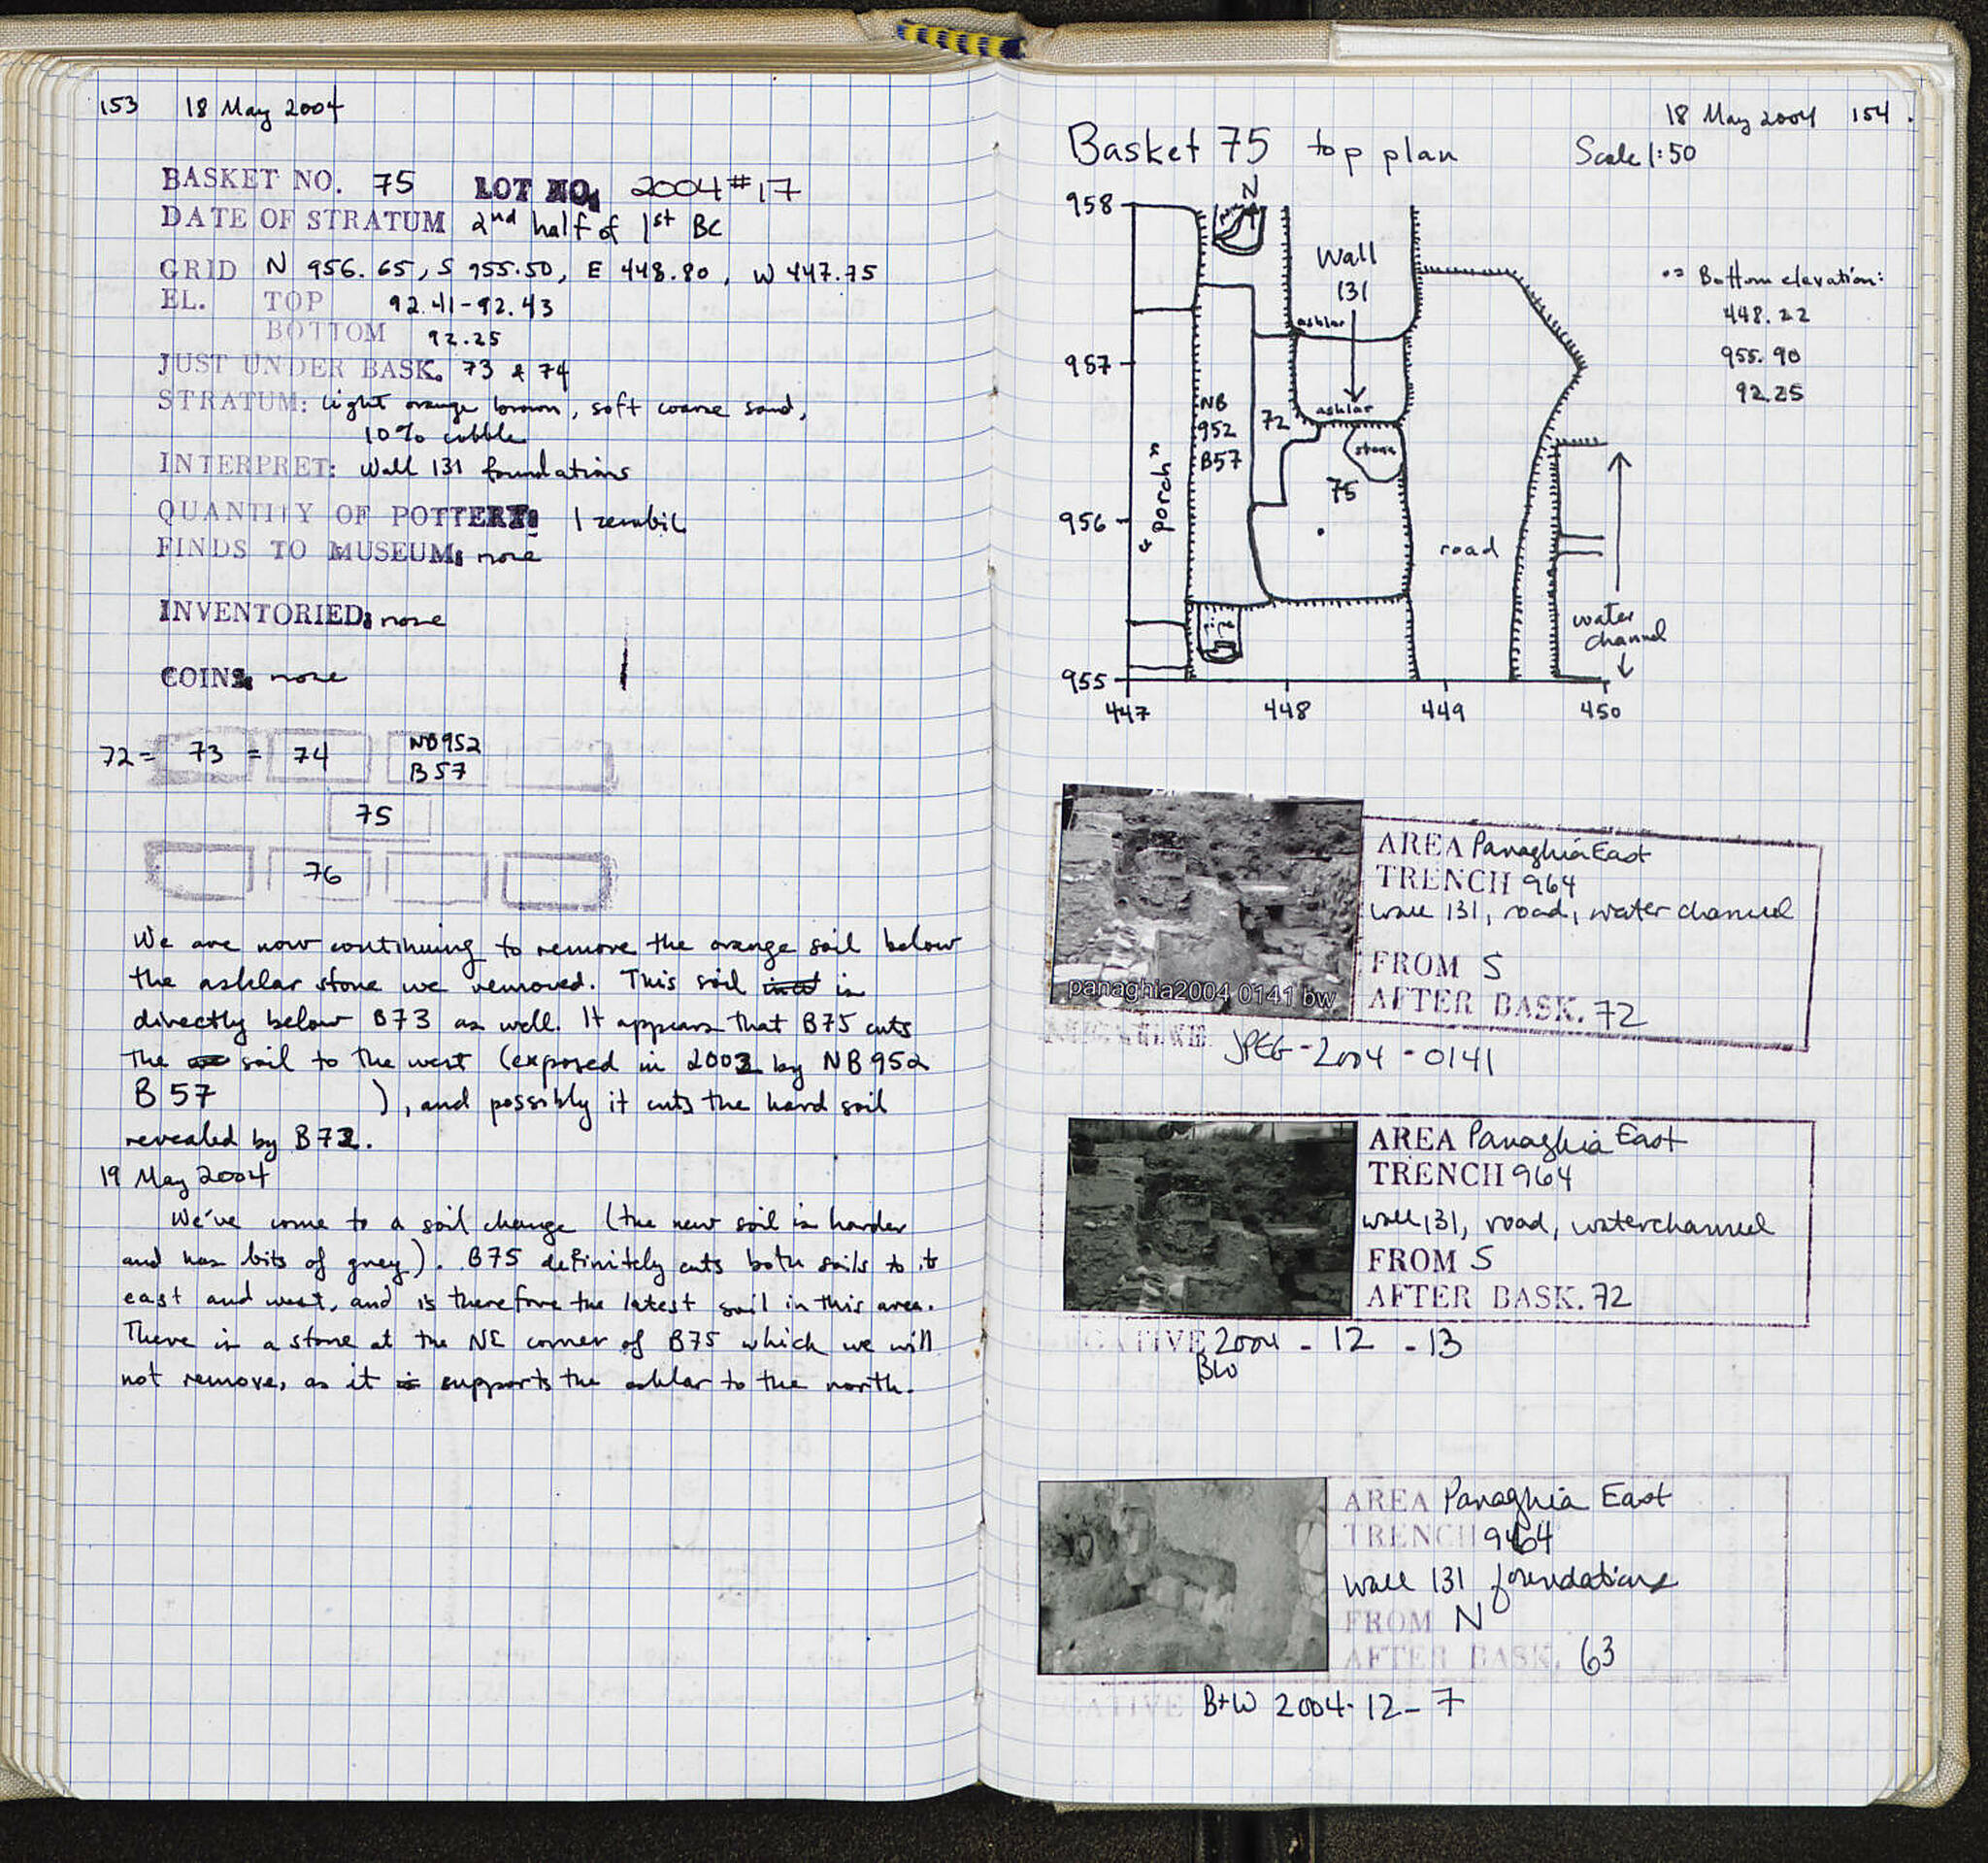 153 18 May 2004
BASKET NO. 75 LOT NO. 2004 #17
DATE OF STRATUM 2nd half of 1st BC
GRID N 956.65, S 955.50, E 448.80, W 447.75
EL. TOP 92.41-92.43
BOTTOM 92.25
JUST UNDER BASK. 73 & 74
STRATUM: light orange brown, soft coarse sand,
10% cobble
INTERPRET: Wall 131 foundations
QUANTITY OF POTTERY: 1 zembil
FINDS TO MUSEUM: none
INVENTORIED: none
COINS: none
72 = 73 = 74 NB952
B57
75
76
We are now continuing to remove the orange soil below
the ashlar stone we removed. This soil is
directly below B73 as well. It appears that B75 cuts
the soil to the west (exposed in 2003 by NB952
B57 ), and possibly it cuts the hard soil
revealed by B72.
19 May 2004
We've come to a soil change (the new soil is harder
and has bits of grey). B75 definitely cuts both soils to its
east and west, and is therefore the latest soil in this area.
There is a stone at the NE corner of B75 which we will
not remove, as it supports the ashlar to the north.
18 May 2004 154.
Basket 75 top plan Scale 1:50
N
958
957
956
955
447 448 449 450
Wall
131
ashlar
ashlar
stone
NB
952
B57
72
75
"porch"
pipe
road
water
channel
• = Bottom elevation:
448.22
955.90
92.25
AREA Panaghia East
TRENCH 964
wall 131, road, water channel
FROM S
AFTER BASK. 72
panaghia2004 0141 bw
JPEG-2004-0141
AREA Panaghia East
TRENCH 964
wall 131, road, waterchannel
FROM S
AFTER BASK. 72
NEGATIVE 2004 - 12 - 13
BW
AREA Panaghia East
TRENCH 964
Wall 131 foundations
FROM N
AFTER BASK. 63
NEGATIVE B+W 2004-12-7